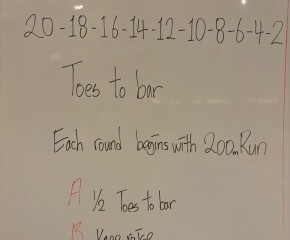 20-18-16-14-12-10-8-6-4-2
Toes to bar
Each round begins with 200m Run
A ½ Toes to bar
B